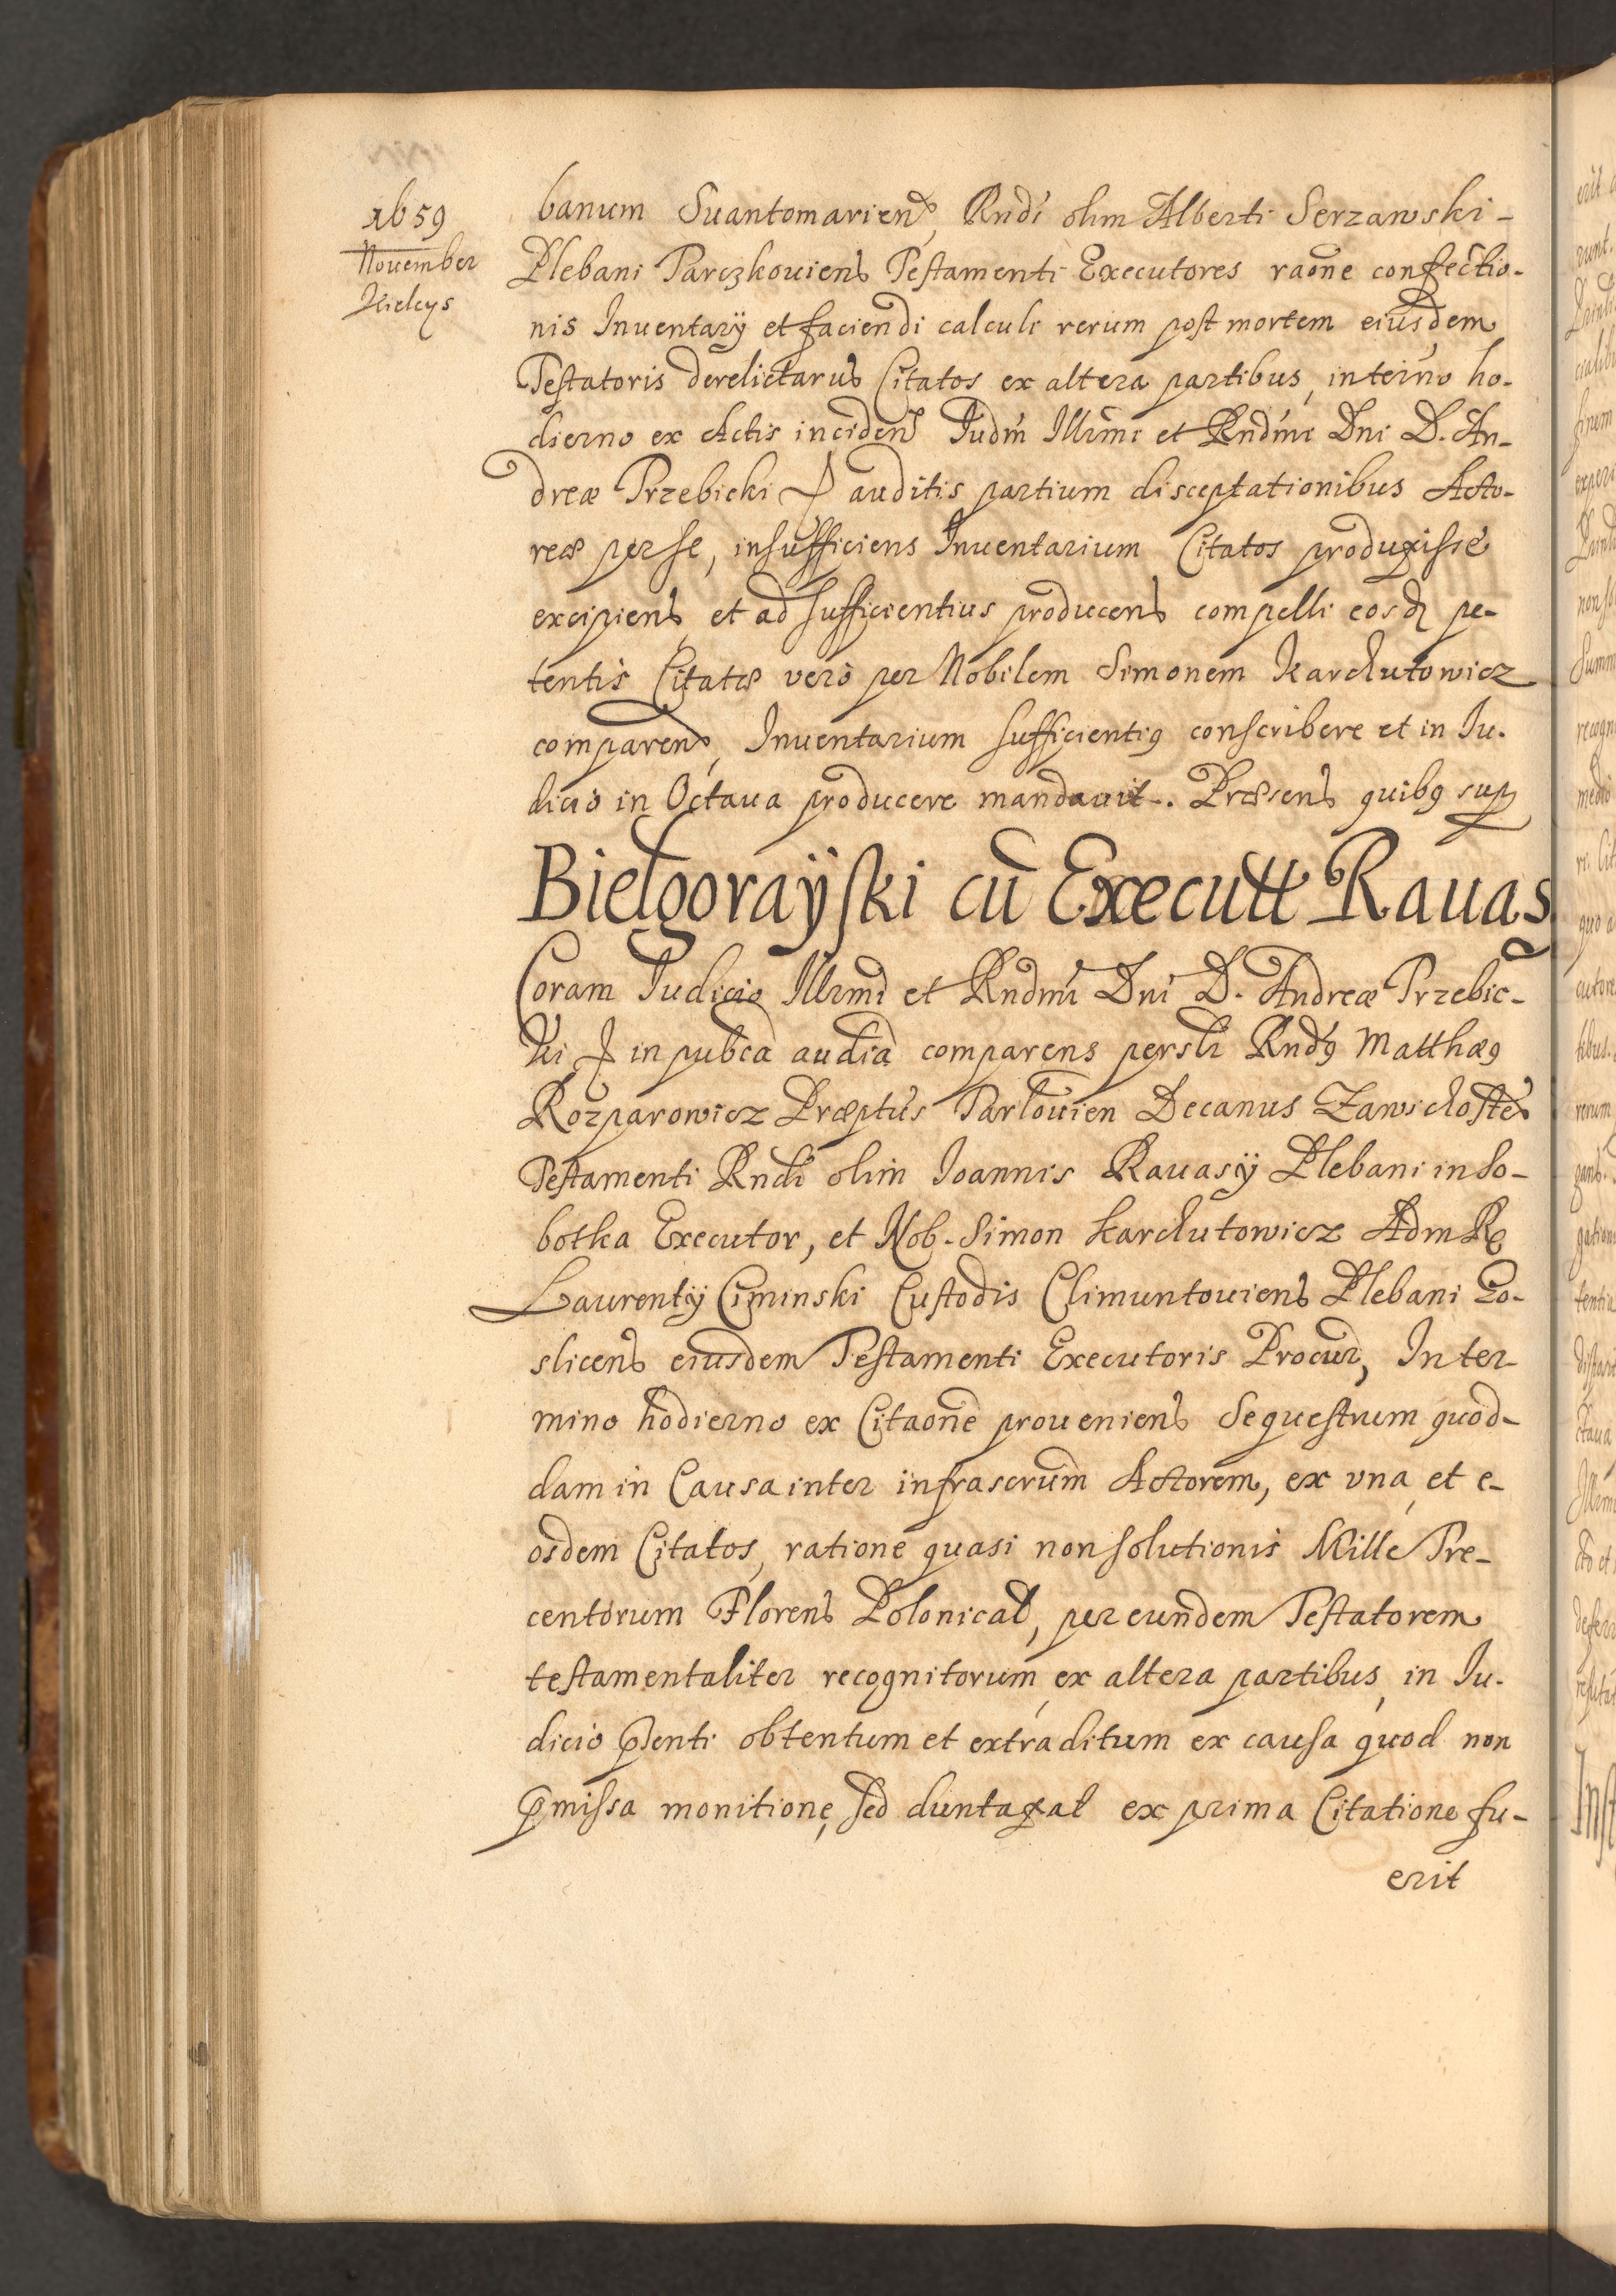 1659
November
Kielcys
banum Suantomarien, Rndi olim Alberti Serzawski-
Plebani Parczkouiens Testamenti Executores raõne confectio-
nis Inuentarÿ et faciendi calculi rerum post mortem eiusdem
Testatoris derelictarus Citatos ex altera partibus, in teino ho-
dierno ex Actis inciden Iudm Illrmi et Rndmi Dni D. An-
dreæ Trzebicki auditis partium disceptationibus Acto-
reæ per se, insufficiens Inuentarium Citatos produxisse
excipiens, et ad sufficientius producens compelli eosd pe-
tentis Citatæ verò per Nobilem Simonem Karchutowicz
comparens, Inuentarium sufficientiq conscribere et in Iu-
dicio in Octaua producere mandauit. Præsens quibq sup
Bielgoraÿski cũ Executt Rauas
Coram Iudicio Illrmi et Rndmi Dni D. Andreæ Trzebic-
ki in pubca audia comparens persli Rndq Matthæq
Rozparowicz Præptus Parlouien Decanus Zawichosten
Testamenti Rndi olim Ioannis Rauasÿ Plebani in So-
botka Executor, et Nob. Simon Karchutowicz Adm R
Laurentÿ Ciminski Custodis Climuntouiens Plebani Go-
slicens eiusdem Testamenti Executoris Procur, In ter-
mino hodierno ex Citaone proueniens Sequestrum quod-
dam in Causa inter infrascrum Actorem, ex vna, et e-
osdem Citatos, ratione quasi non solutionis Mille Tre-
centorum Florens Polonical, per eundem Testatorem
testamentaliter recognitorum ex altera partibus, in Iu-
dicio pnti obtentum et extraditum ex causa quod non
pmissa monitione, sed duntaxat ex prima Citatione fu-
erit